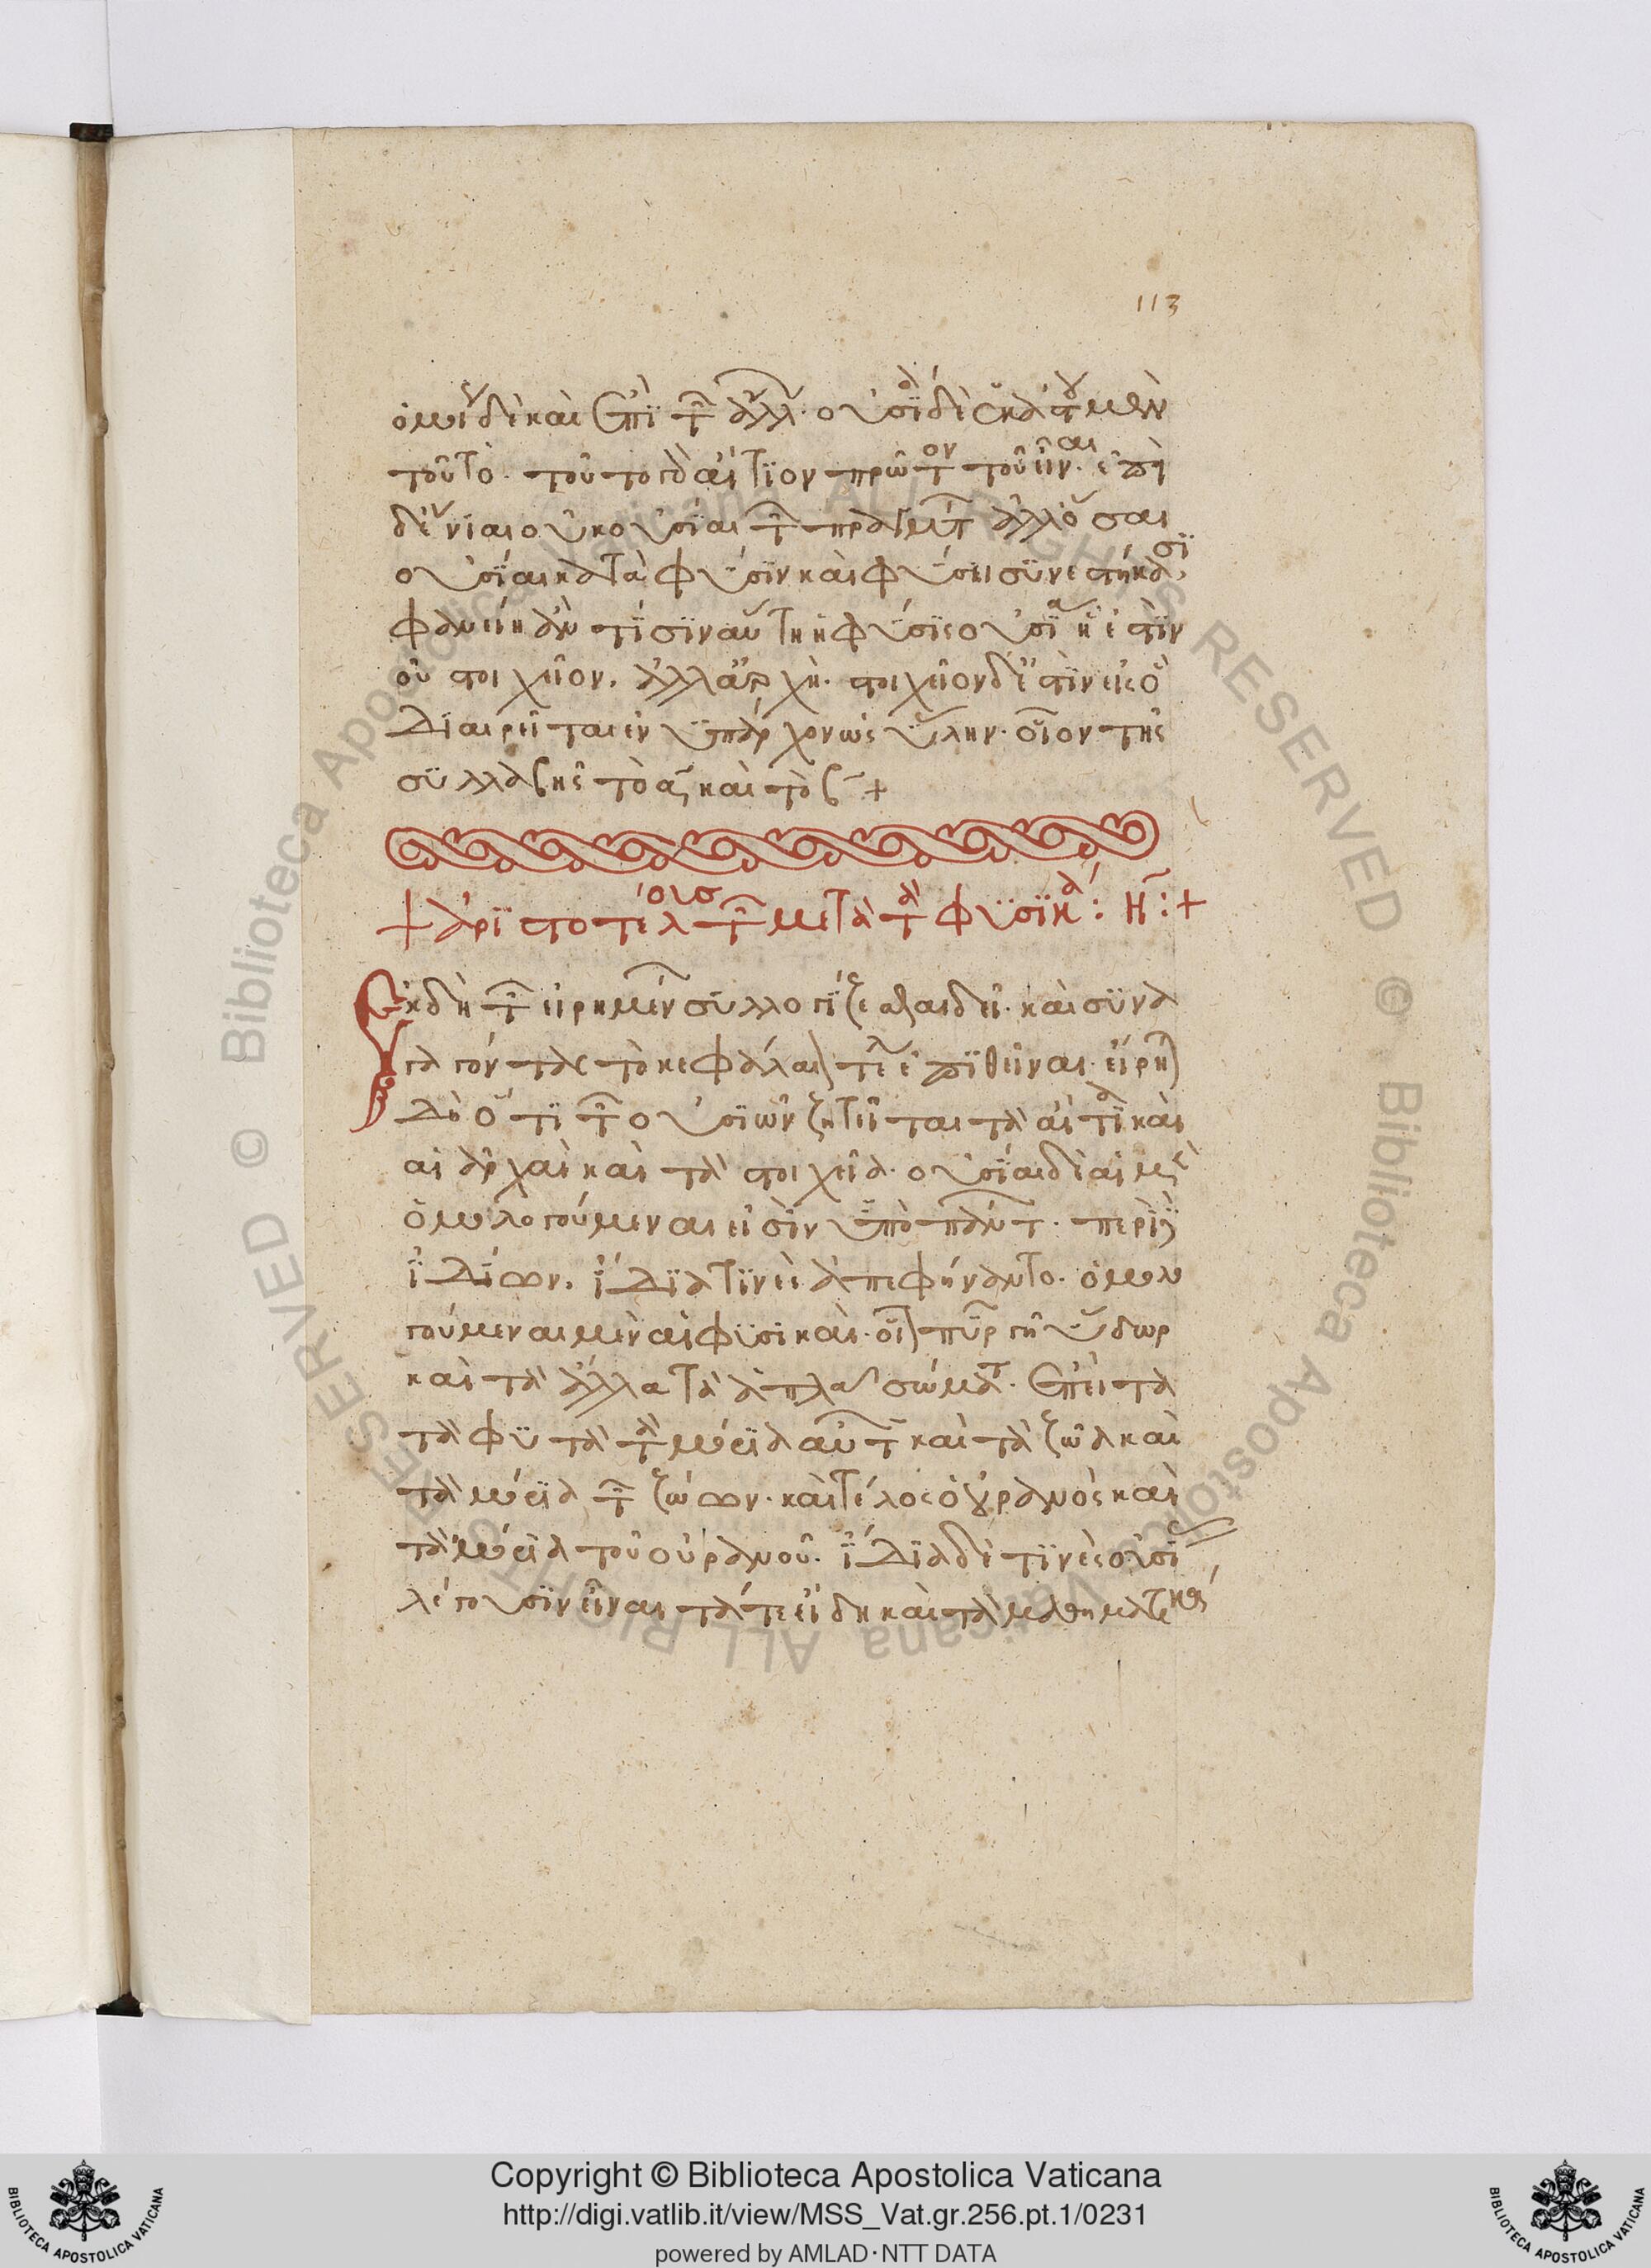 113
ὁμοί δὲ καὶ ἐπὶ τῶν ἄλλων. οὐσία δὲ ἑκάστου μὲν
τοῦτο. τοῦτο γὰρ αἴτιον πρῶτον τοῦ εἶναι. ἐπεὶ
δ' ἔνια οὐκ οὐσίαι τῶν πραγμάτων ἀλλ' ὅσαι
οὐσίαι κατὰ φύσιν καὶ φύσει συνεστήκασι,
φανείη ἄν τισιν αὕτη ἡ φύσις οὐσία ἥ ἐστιν
οὐ στοιχεῖον, ἀλλ' ἀρχή. στοιχεῖον δ' ἐστὶν εἰς ὃ
διαιρεῖται ἐνυπάρχον ὡς ὕλην. οἷον τῆς
συλλαβῆς τὸ α καὶ τὸ β +
+ ἀριστοτέλους τῶν μετὰ τὰ φυσικά : Η : +
Ἐκ δὴ τῶν εἰρημένων συλλογίζεσθαι δεῖ. καὶ συνα
γαγόντας τὸ κεφάλαιον τέλος ἐπιθεῖναι. εἴρηται
δὴ ὅτι τῶν οὐσιῶν ζητεῖται τὰ αἴτια καὶ
αἱ ἀρχαὶ καὶ τὰ στοιχεῖα. οὐσίαι δὲ αἱ μὲν
ὁμολογούμεναι εἰσὶν ὑπὸ πάντων. περὶ δὲ
ἰδίων, ἴδια τινὲς ἀπεφήναντο. ὁμολο
γούμεναι μὲν αἱ φυσικαί. οἷον πῦρ γῆ ὕδωρ
καὶ τὰ ἄλλα τὰ ἁπλᾶ σώματα. ἔπειτα
τὰ φυτὰ τὰ μόρια αὐτῶν καὶ τὰ ζῶα καὶ
τὰ μόρια τῶν ζώων. καὶ τέλος ὁ οὐρανὸς καὶ
τὰ μόρια τοῦ οὐρανοῦ. ἴδια δέ τινες οὐσίας
λέγουσιν εἶναι τά τε εἴδη καὶ τὰ μαθηματικά
Copyright © Biblioteca Apostolica Vaticana
http://digi.vatlib.it/view/MSS_Vat.gr.256.pt.1/0231
powered by AMLAD·NTT DATA
BIBLIOTECA APOSTOLICA VATICANA
BIBLIOTECA APOSTOLICA VATICANA
© Biblioteca Apostolica Vaticana ALL RIGHTS RESERVED
© Biblioteca Apostolica Vaticana ALL RIGHTS RESERVED